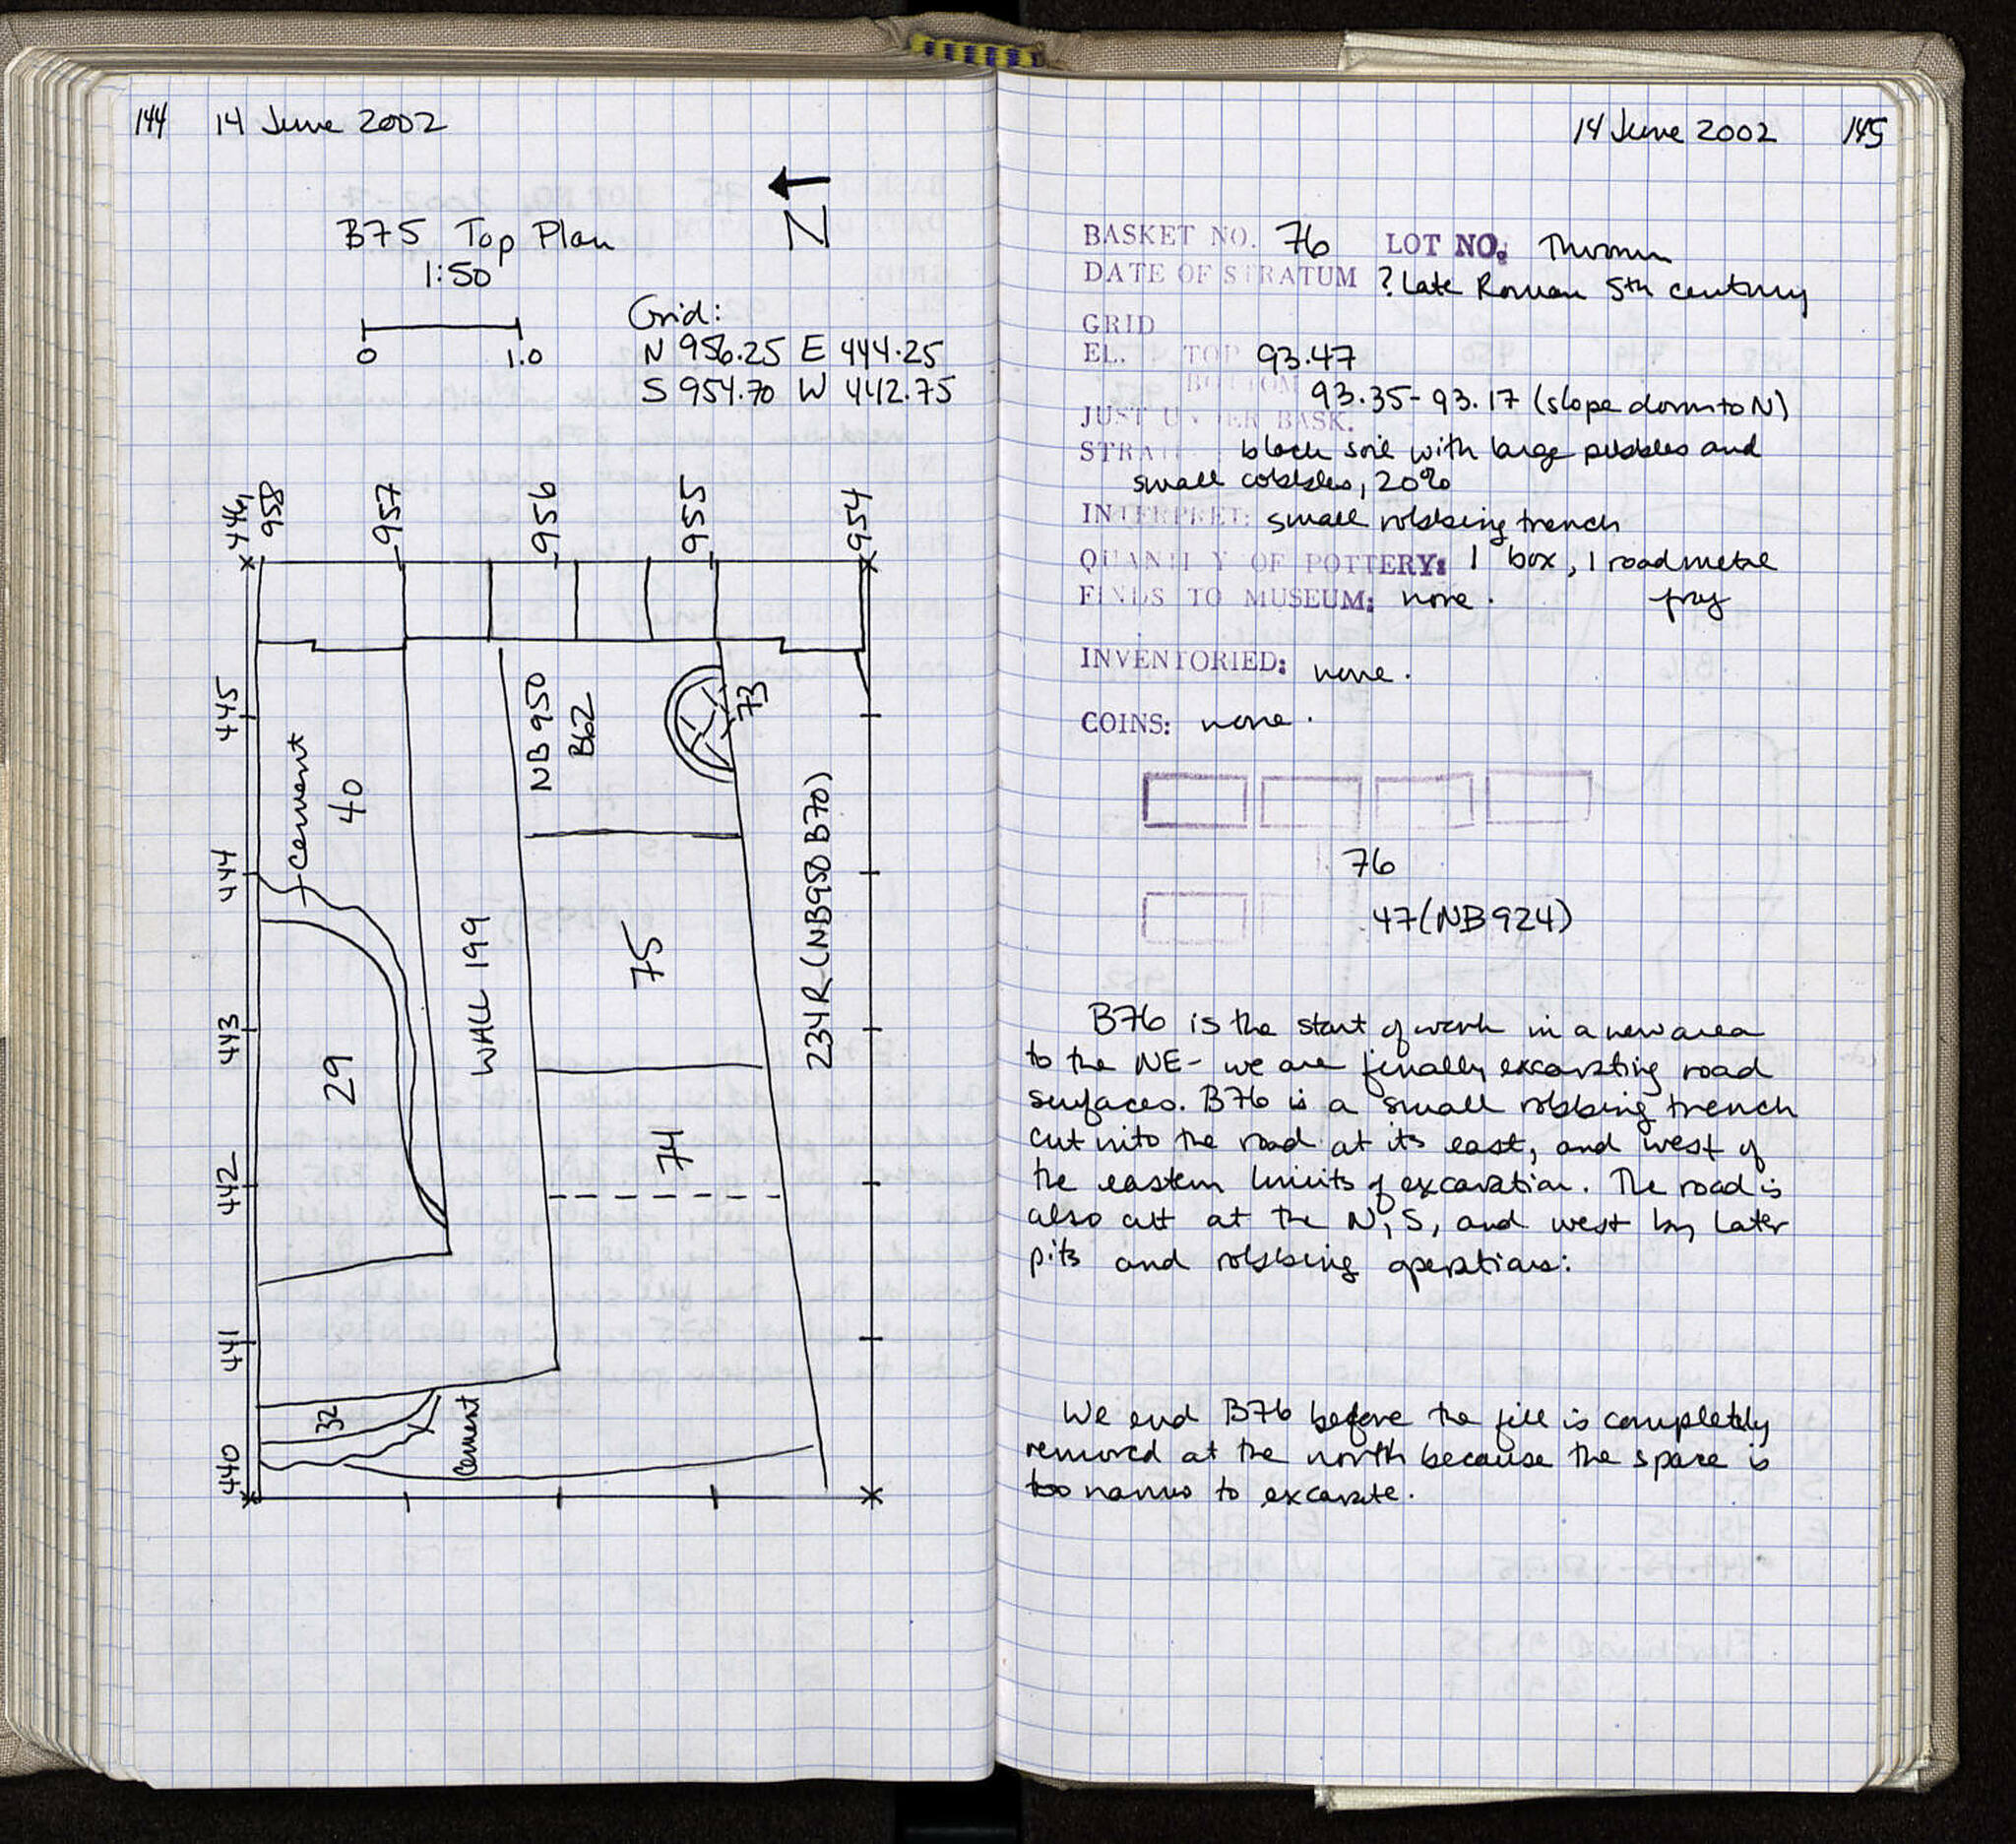 144 14 June 2002
N
B75 Top Plan
1:50
0 1.0
Grid:
N 956.25 E 444.25
S 954.70 W 442.75
446
958
957
956
955
954
445
444
443
442
441
440
cement
40
29
WALL 199
NB 950
B62
73
75
74
234R (NB950 B70)
32
cement
14 June 2002 145
BASKET NO. 76 LOT NO. Thrown
DATE OF STRATUM ? Late Roman 5th century
GRID
EL. TOP 93.47
BOTTOM 93.35-93.17 (slope down to N)
JUST UNDER BASK.
STRAT black soil with large pebbles and
small cobbles, 20%
INTERPRET: small robbing trench
QUANTITY OF POTTERY: 1 box, 1 road metal
FINDS TO MUSEUM: none. frag
INVENTORIED: none.
COINS: none.
76
47 (NB 924)
B76 is the start of work in a new area
to the NE - we are finally excavating road
surfaces. B76 is a small robbing trench
cut into the road at its east, and west of
the eastern limits of excavation. The road is
also cut at the N, S, and west by later
pits and robbing operations:
We end B76 before the fill is completely
removed at the north because the space is
too narrow to excavate.